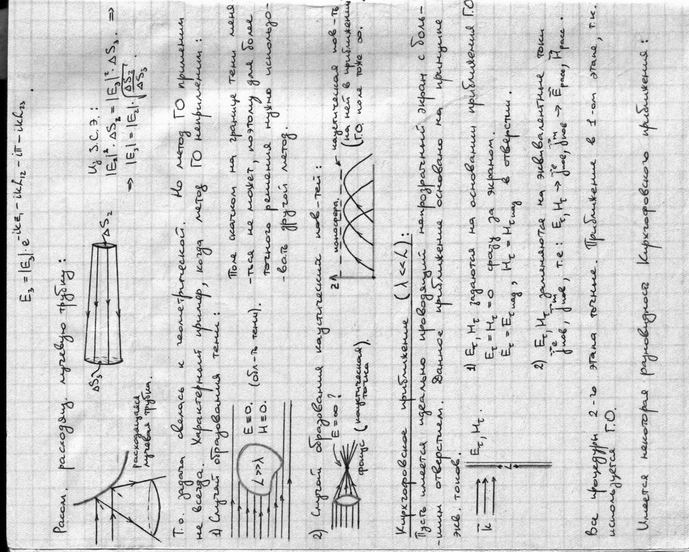 E₃ = |E₃|·e^{-ikS₁-ikL₁₂-iπ-ikL₂₃}.
Рассм. расходящ. лучевую трубку:
расходящаяся
лучевая трубка.
ΔS₃
ΔS₂
Из З.С.Э.:
|E₂|²·ΔS₂ = |E₃|²·ΔS₃ ⇒
⇒ |E₃| = |E₂|·√(ΔS₂/ΔS₃)
Т.о. задача свелась к геометрической. Но метод ГО применим
не всегда. Характерный пример, когда метод ГО неприменим:
1) Случай образования тени:
L>>λ
E=0. (обл-ть тени).
H=0.
Поле скачком на границе тени меня
-ться не может, поэтому для более
точного решения нужно использо-
-вать другой метод.
2) Случай образования каустических пов-тей:
E=∞?
фокус (каустическая
точка).
ионосфера
каустическая пов-ть
(на ней в приближении
ГО. поле тоже ∞.
Кирхгофовское приближение (λ<<L):
Пусть имеется идеально проводящий непрозрачный экран с боль-
-шим отверстием. Данное приближение основано на принципе
экв. токов.
k
Eτ, Hτ.
L
1) Eτ, Hτ задаются на основании приближения Г.О.
Eτ = Hτ = 0 сразу за экраном.
Eτ = Eτ пад, Hτ = Hτ пад в отверстии.
2) Eτ, Hτ заменяются на эквивалентные токи
jᵉпов, jᵐпов, т.е: Eτ, Hτ → jᵉпов, jᵐпов → Eрасс, Hрасс.
Все процедуры 2-го этапа точные. Приближение в 1-ом этапе, т.к.
используется Г.О.
Имеется некоторая разновидность Кирхгофовского приближения: